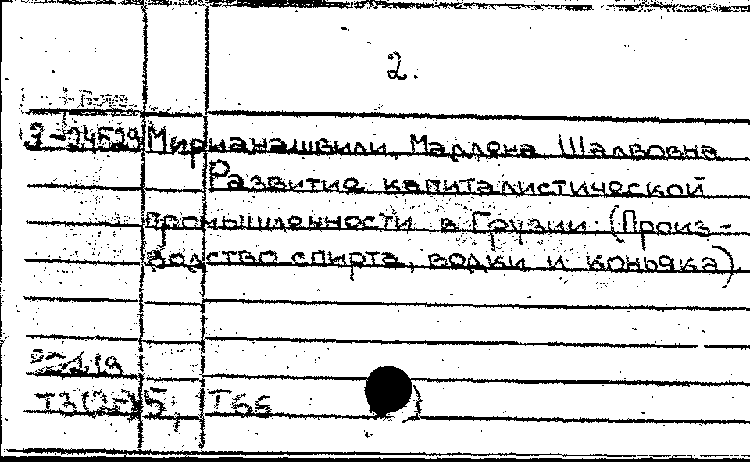 2.
Э-24529 Мирианашвили, Марлена Шалвовна
Развитие капиталистической
промышленности в Грузии. (Произ-
водство спирта, водки и коньяка).
Т3(2Г)5; Т66